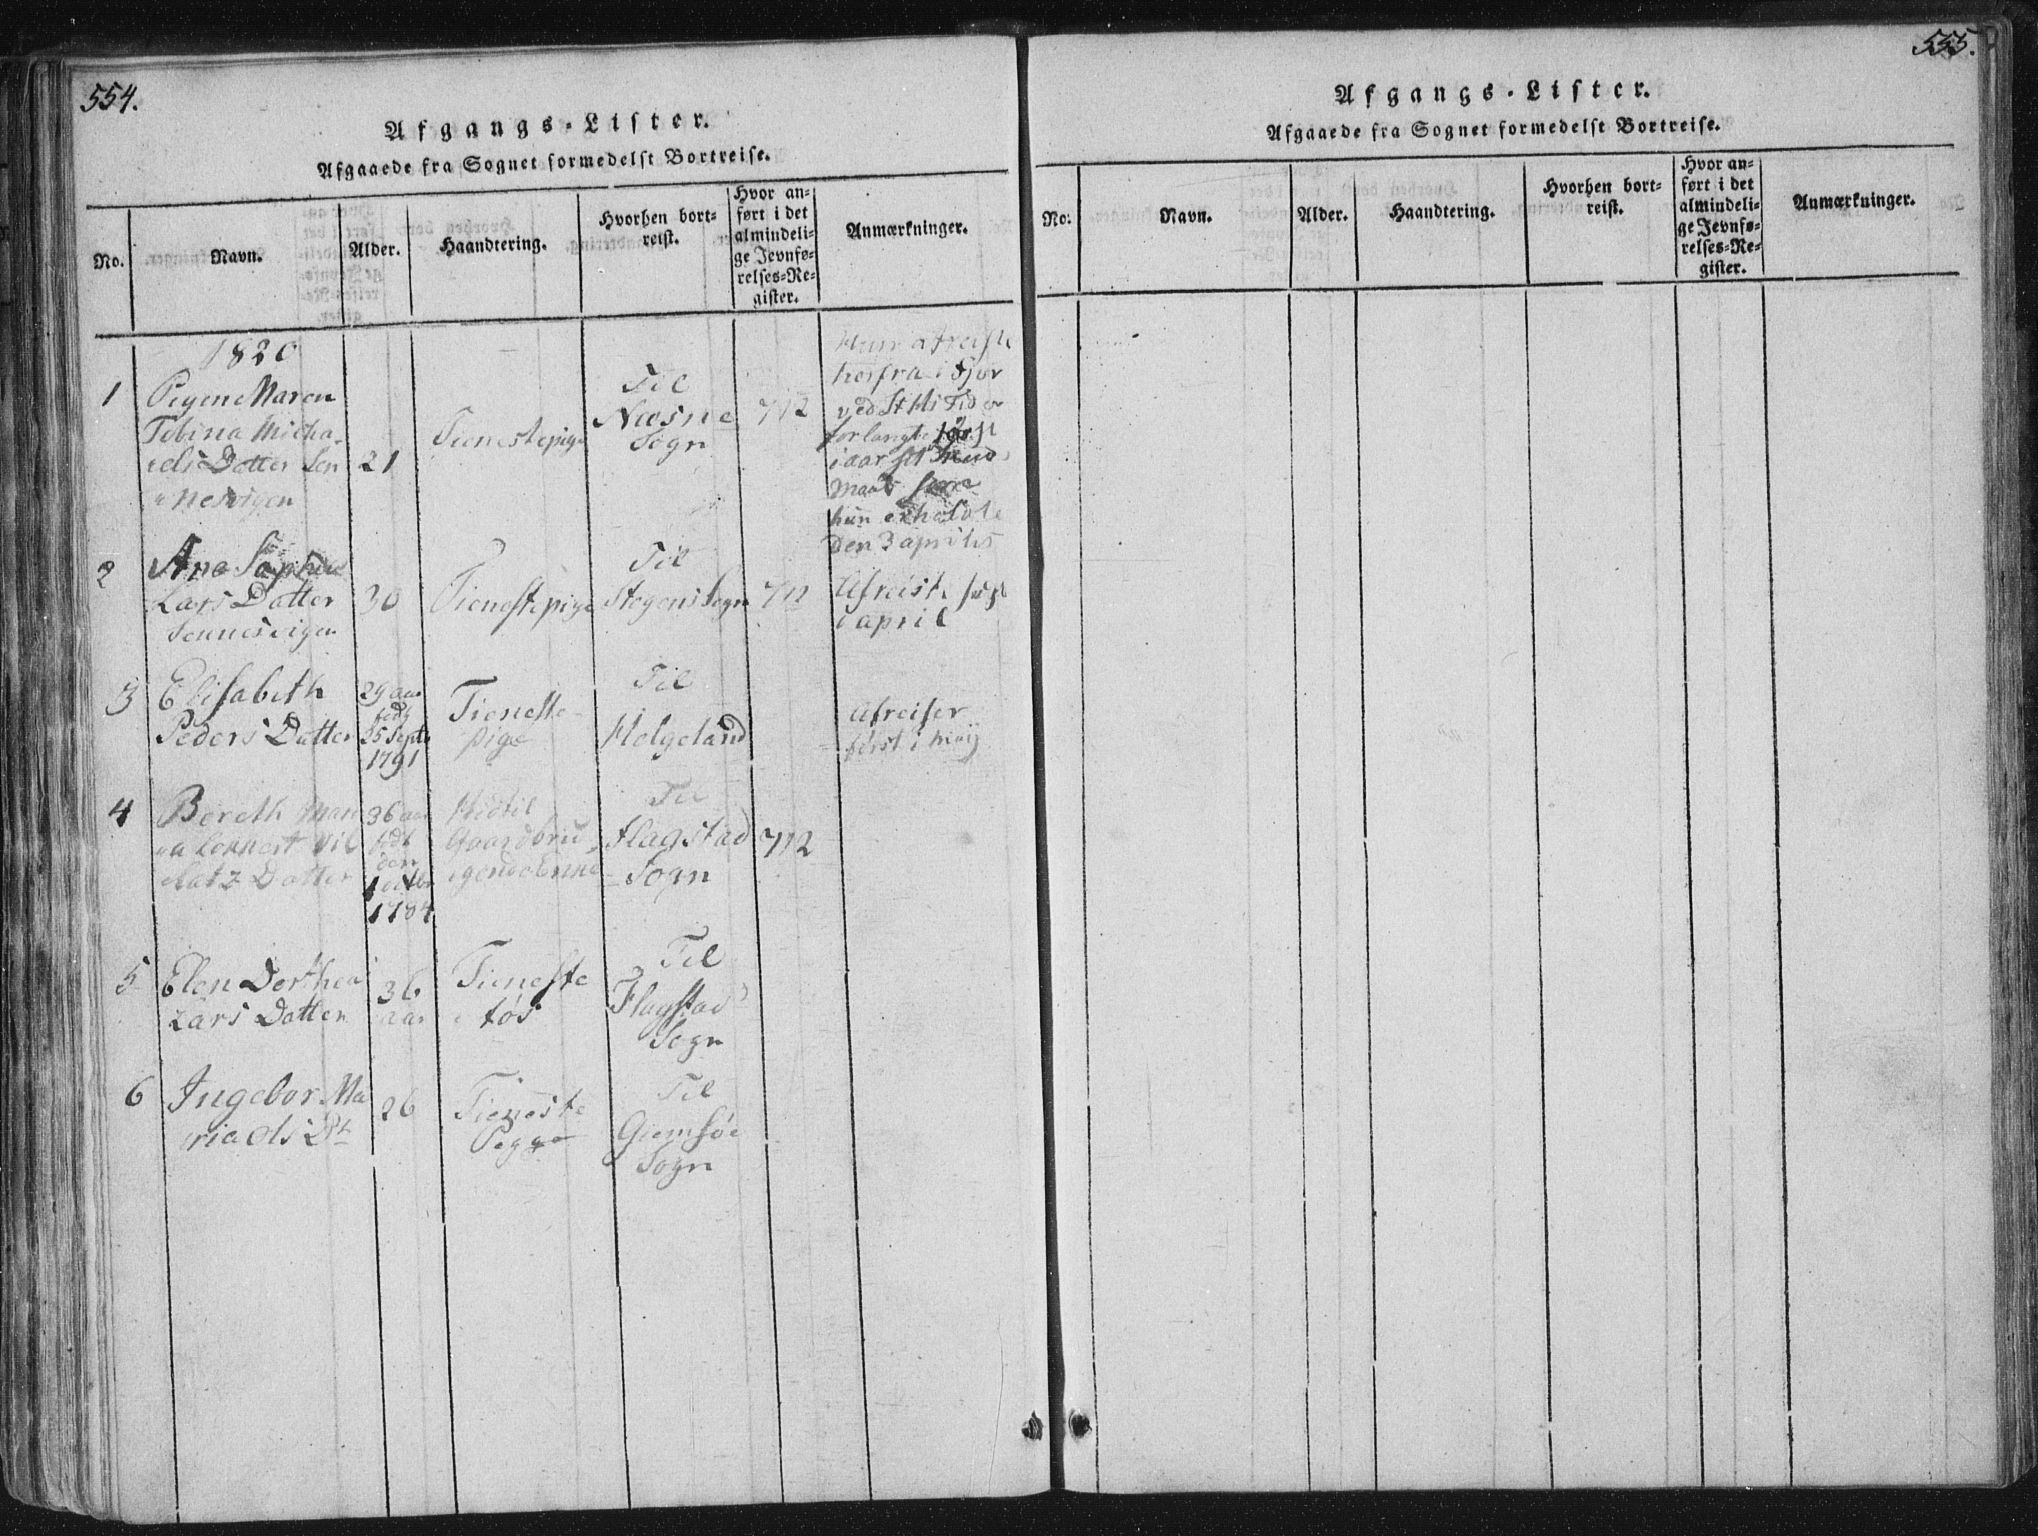 554.
Afgangs-Lister.
Afgaaede fra Sognet formedelst Bortreise.
No.
Navn.
Alder.
Haandtering.
Hvorhen bort-
reist.
Hvor an-
ført i det
almindeli-
ge Jevnfø-
relses-Re-
gister.
Anmærkninger.
1820
1
Pigen Maren
Tobina Micha-
els Datter Sen
nesvigen
21
Tienestepige
Til
Næsne
Sogn
712
Hun afreiste
herfra i Fjor
ved St Hs Tid
forlangte først
i aar sit
hun erholdte
den 3 aprilis
2
Ane Sophie
Lars Datter
Sennesvigen
30
Tienestepige
Til
Stegens Sogn
712
Afreiste først
i april
3
Elisabeth
Peders Datter
29 aar
født
25 Septr
1791
Tieneste-
pige
Til
Helgeland
Afreiser
først i Maij
4
Bereth Mar
Datter
36 aar
født
den
1 octbr
1784
Hidtil
Til
Flagstad
Sogn
712
5
Elen Dorthea
Lars Datter
36
aar
Tieneste
tøs
Til
Flagstad
Sogn
6
Ingebor Ma
ria Ols Dt
26
Tieneste
Pigge
Til
Giemsøe
Sogn
555.
Afgangs-Lister.
Afgaaede fra Sognet formedelst Bortreise.
No.
Navn.
Alder.
Haandtering.
Hvorhen bort-
reist.
Hvor an-
ført i det
almindeli-
ge Jevnfø-
relses-Re-
gister.
Anmærkninger.